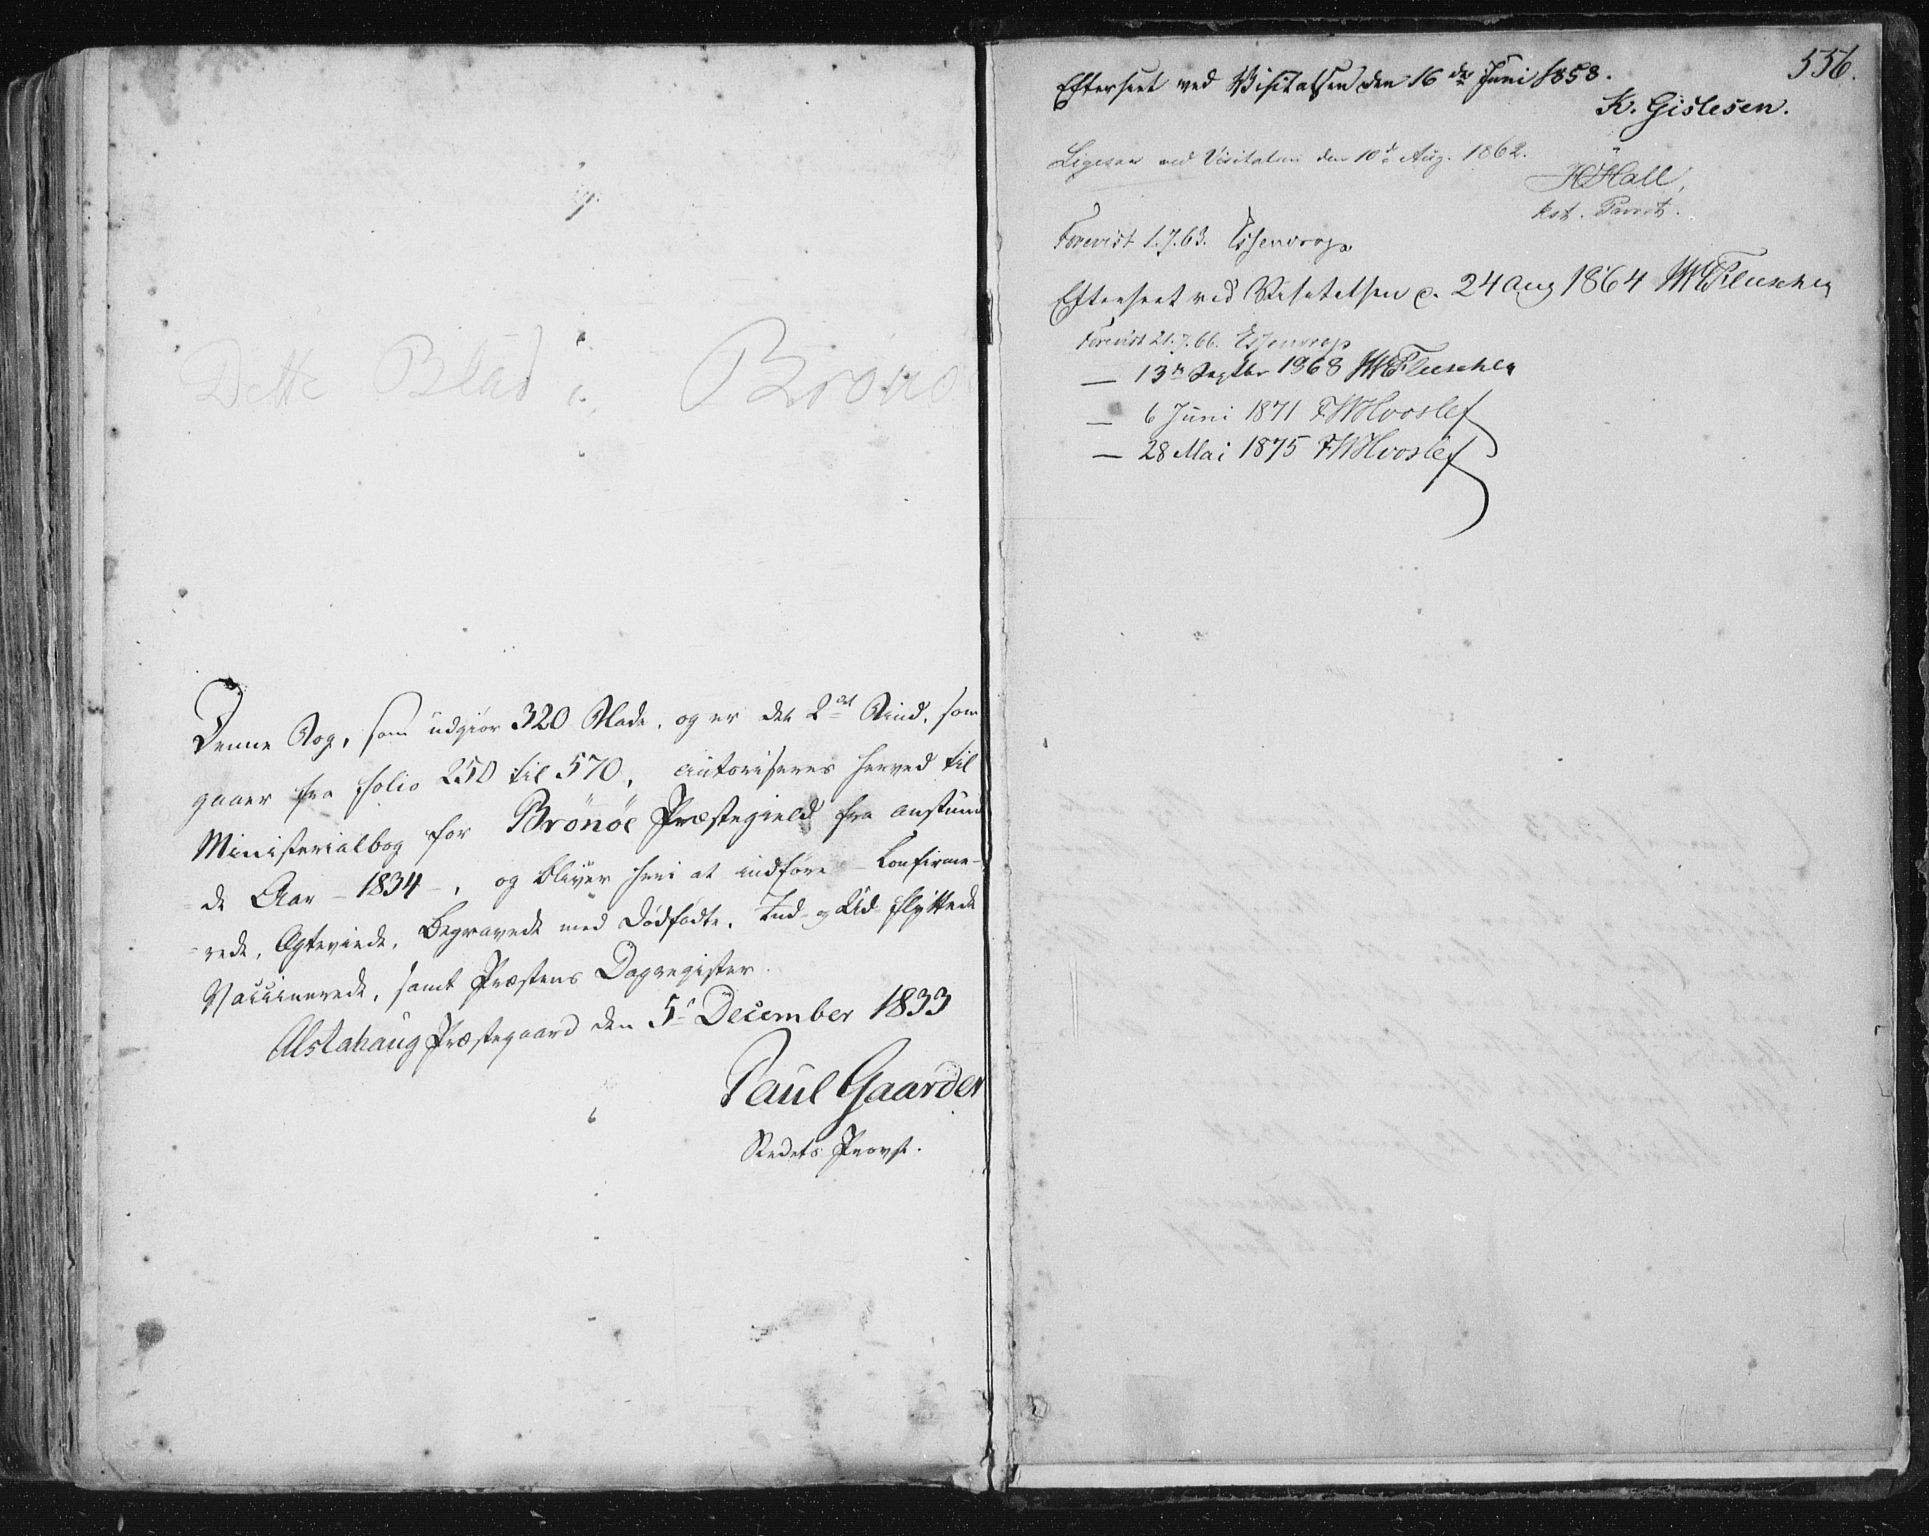 Dette Blad i Brönö
Denne Bog, som udgiör 320 Blade, og er det 2det Bind, som
gaaer fra folio 250 til 570, autoriseres herved til
Ministerialbog for Brönöe Præstegield fra anstund-
de Aar - 1834 -, og bliver heri at indföre Confirme-
rede, Egteviede, Begravede med Dödfödte, Ind- og Ud-flyttede
Vaccinerede, samt Præstens Dagregister.
Alstahaug Præstegaard den 5t December 1833
Paul Gaarder
Stedets Provst.
556.
Efterseet ved Visitatsen den 16de Juni 1858.
K. Gislesen.
Ligesaa ved Visitatsen den 10de Aug. 1862.
H Hall,
kst. Provst.
Forevist 1.7.63. Essendrop
Efterseet ved Visitatsen d. 24 Aug 1864
Forevist 21.7.66. Essendrop
— 13de Septbr 1868
— 6 Juni 1871 FWHvoslef
— 28 Mai 1875 FWHvoslef